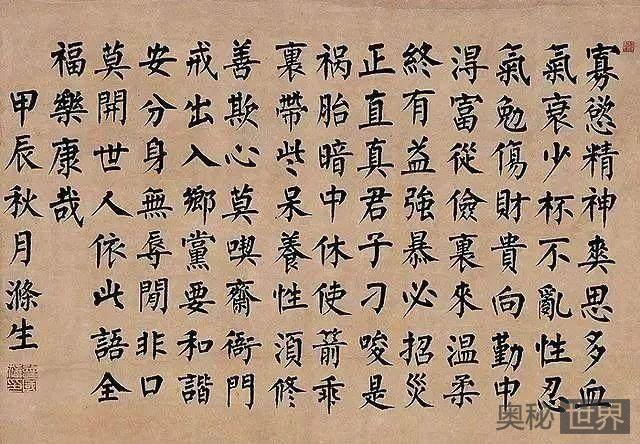 寡慾精神爽思多血
氣衰少杯不亂性忍
氣勉傷財貴向勤中
淂富從儉裏來温柔
終有益強暴必招災
正直真君子刁唆是
祸胎暗中休使箭乖
裏帶些呆養性須修
善欺心莫喫齋衙門
戒出入鄉黨要和諧
安分身無辱閒非口
莫開世人依此語全
福樂康哉
甲辰秋月滌生
奥秘世界